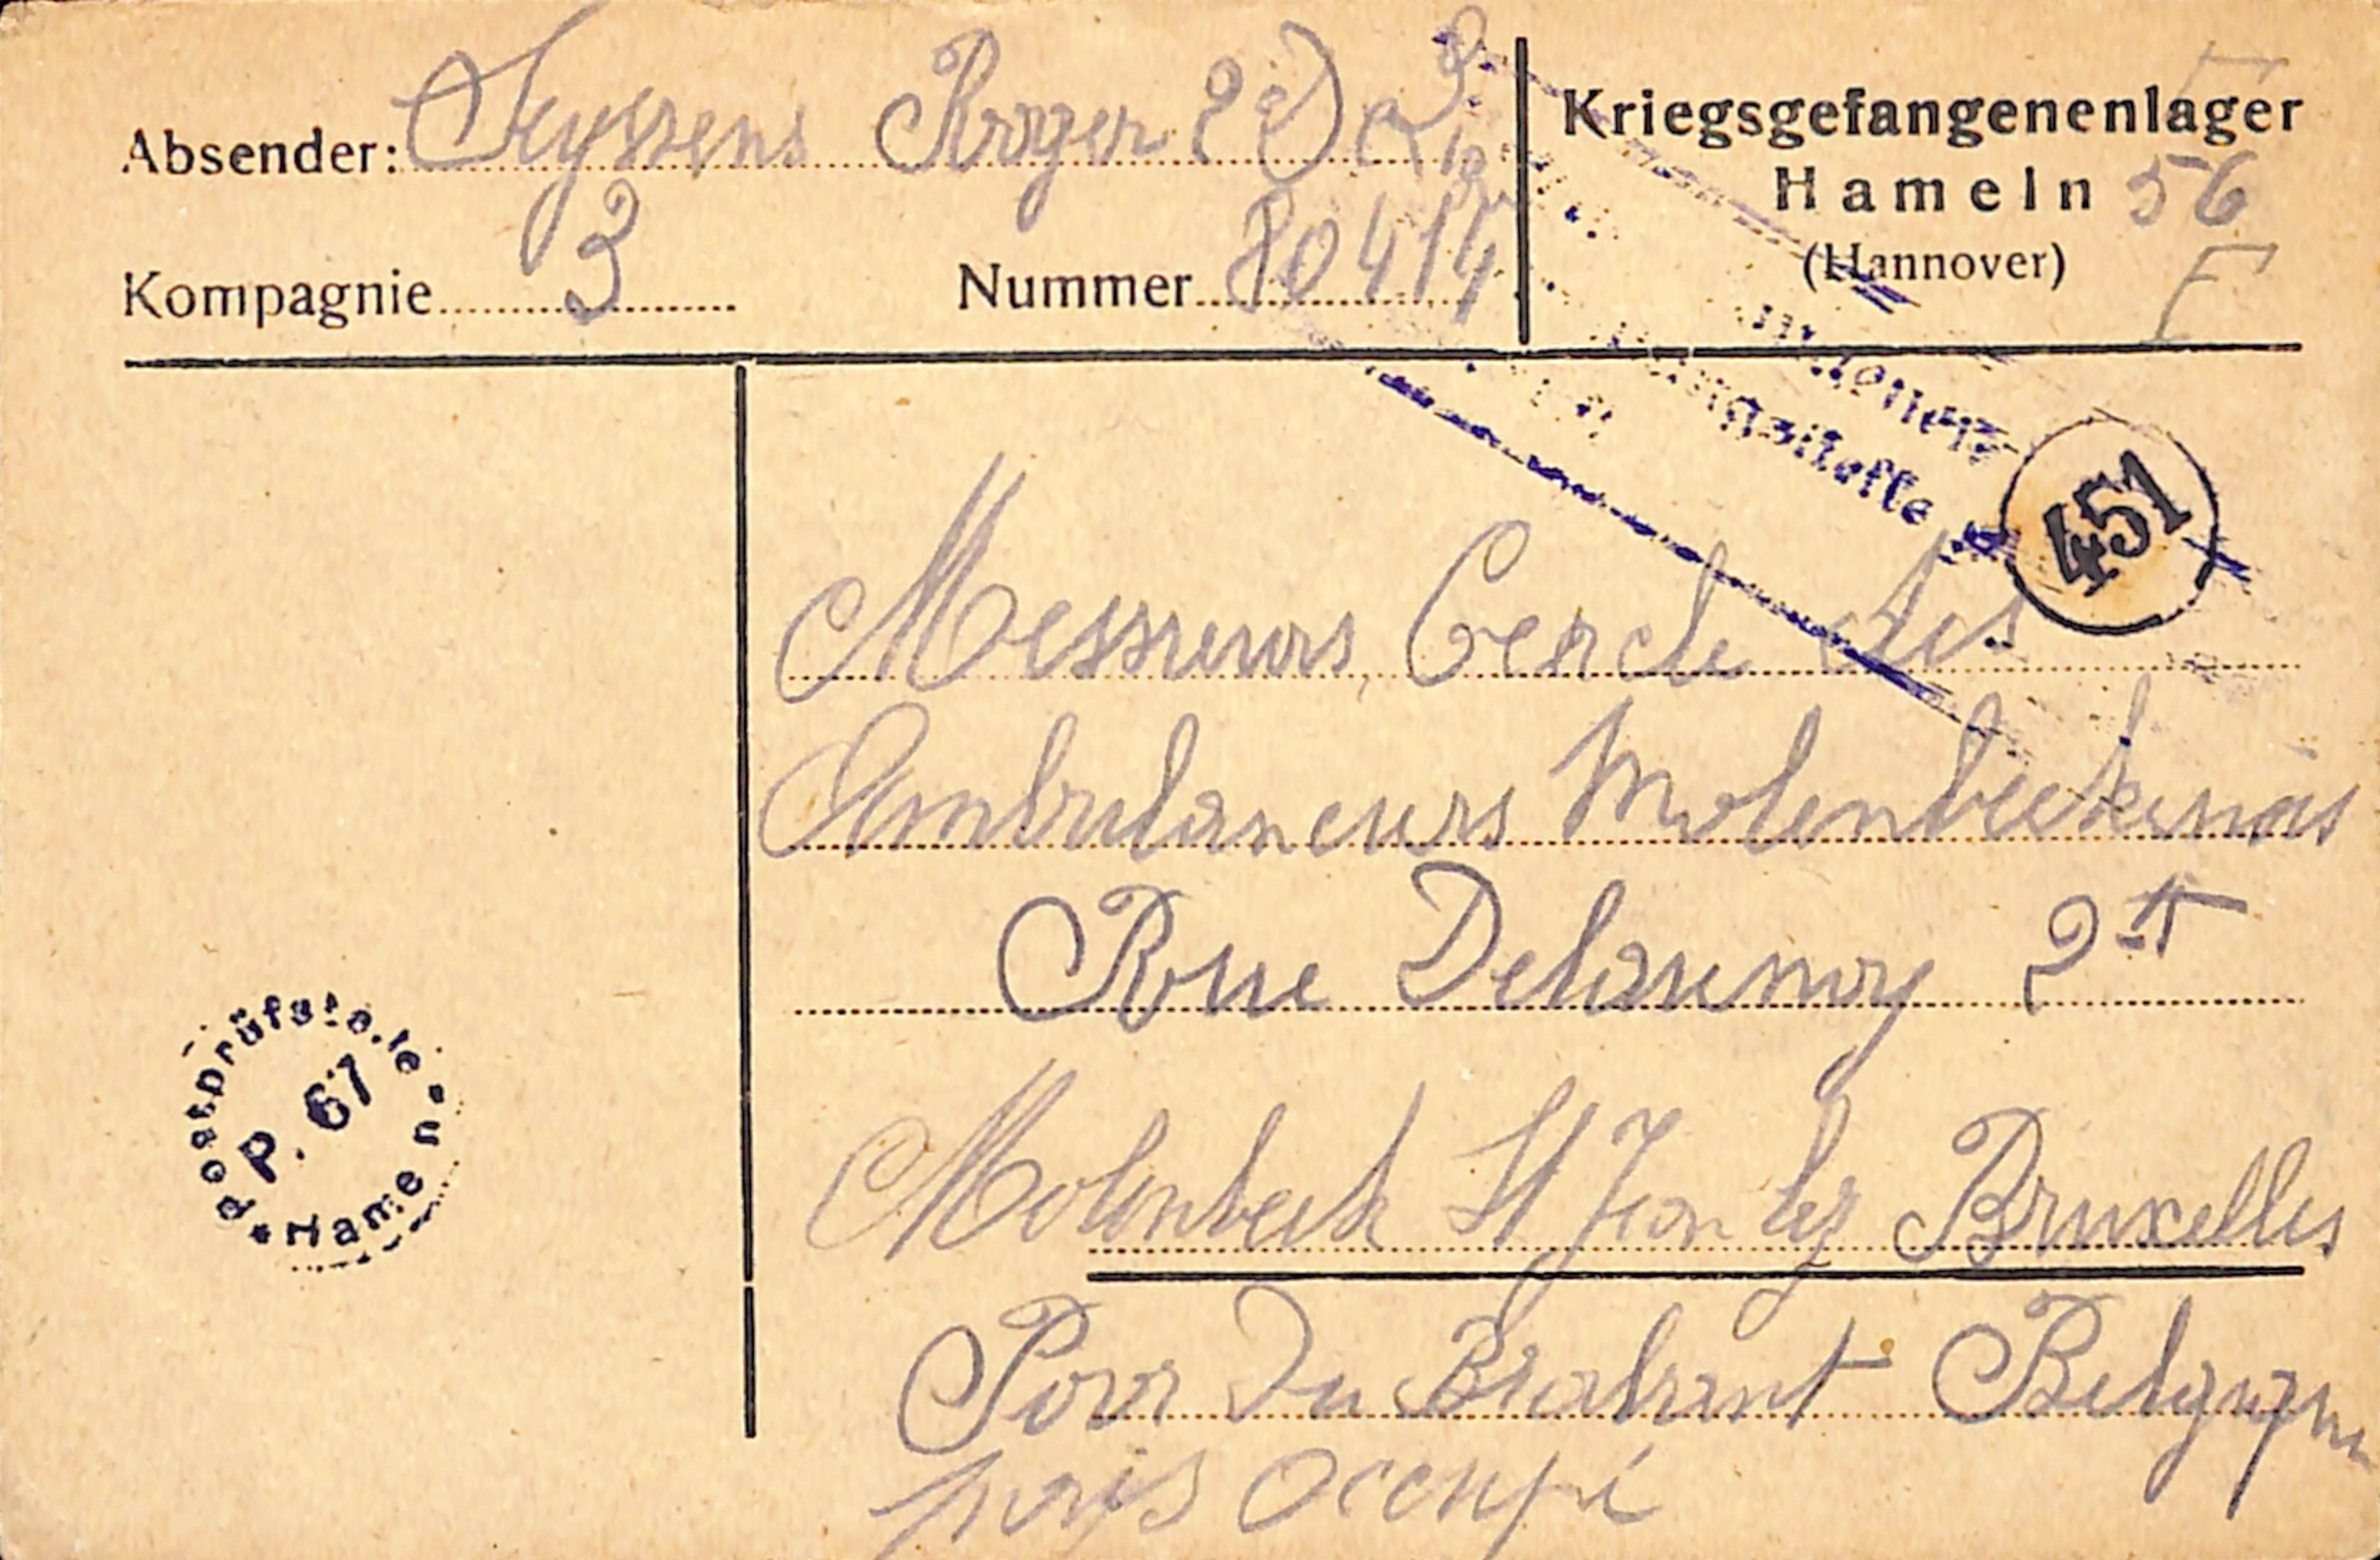 Absender: Seyssens Roger
Kompagnie 3 Nummer 80414
Kriegsgefangenenlager
Hameln 56
(Hannover) F
451
Messieurs Cercle des
Ambulanciers Molenbeekenois
Rue Delaunoy
Molenbeek St Jean lez Bruxelles
Prov Du Brabant Belgique
pays occupé
Postprüfstelle
P. 67
Hameln